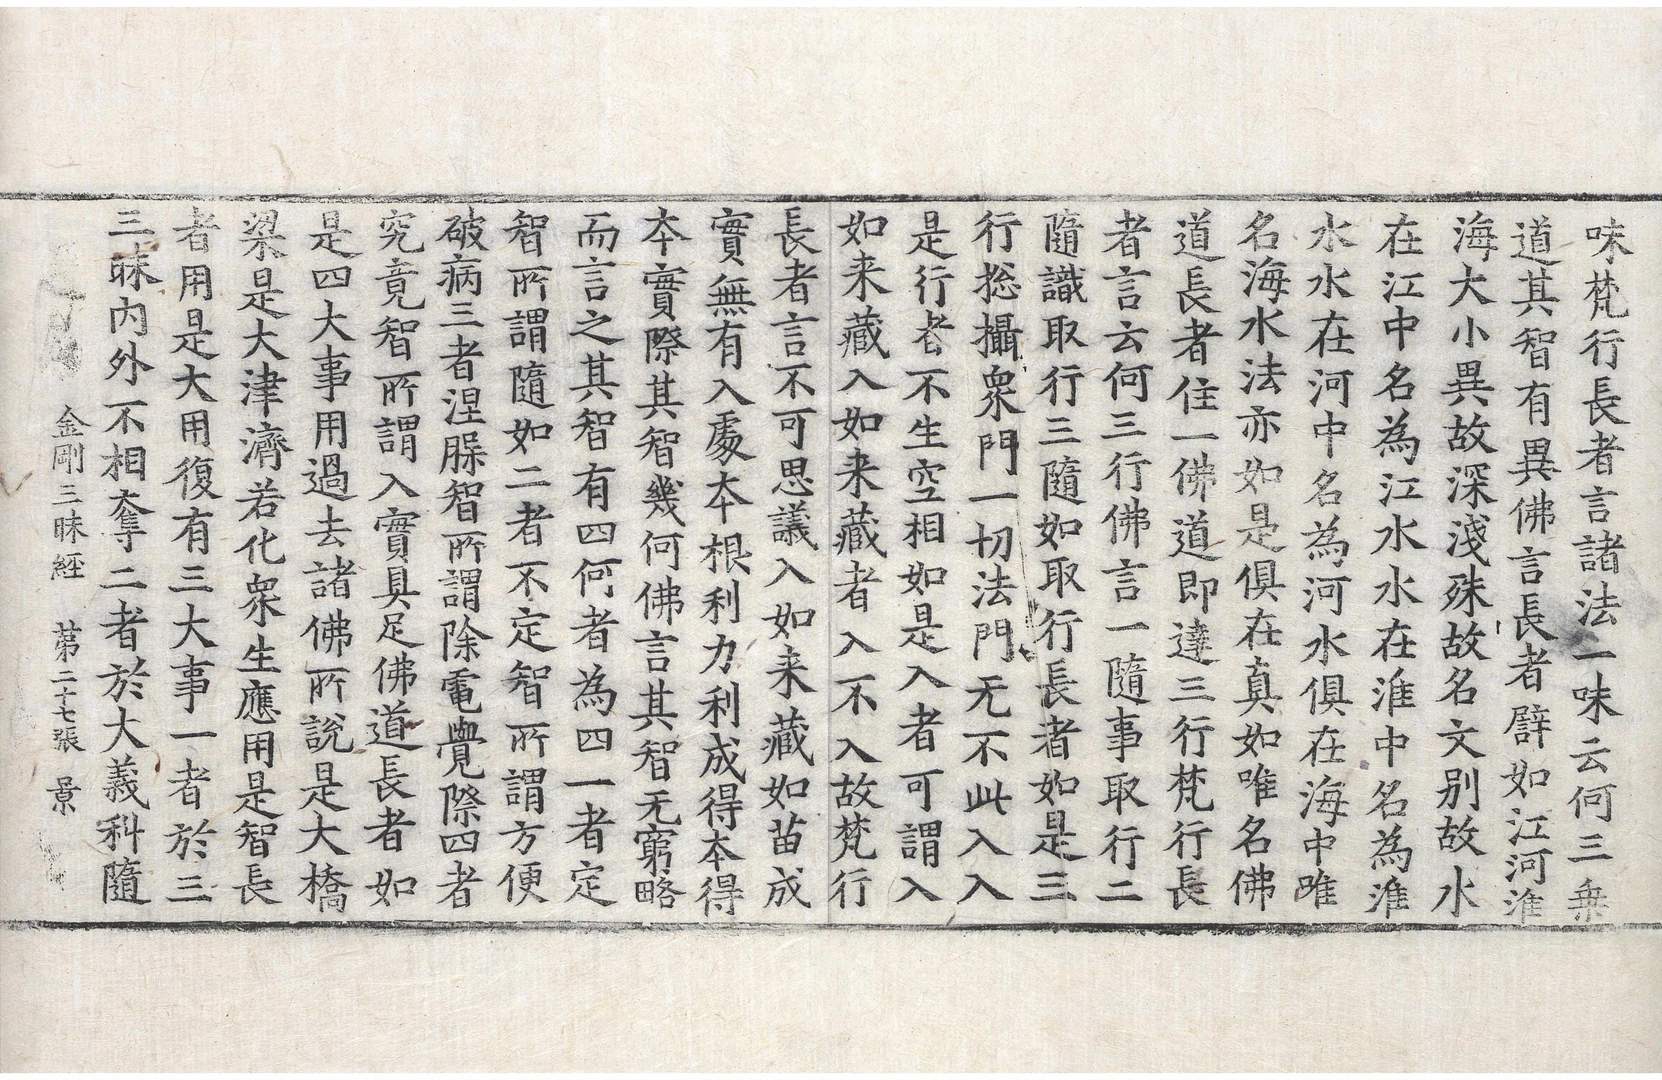 味梵行長者言諸法一味云何三乗
道其智有異佛言長者辟如江河淮
海大小異故深淺殊故名文別故水
在江中名為江水水在淮中名為淮
水水在河中名為河水俱在海中唯
名海水法亦如是俱在真如唯名佛
道長者住一佛道即達三行梵行長
者言云何三行佛言一隨事取行二
隨識取行三隨如取行長者如是三
行捴攝衆門一切法門无不此入入
是行者不生空相如是入者可謂入
如来藏入如来藏者入不入故梵行
長者言不可思議入如来藏如苗成
實無有入處本根利力利成得本得
本實際其智幾何佛言其智无窮略
而言之其智有四何者為四一者定
智所謂隨如二者不定智所謂方便
破病三者涅脲智所謂除電覺際四者
究竟智所謂入實具足佛道長者如
是四大事用過去諸佛所說是大橋
梁是大津濟若化衆生應用是智長
者用是大用復有三大事一者於三
三昧內外不相奪二者於大義科隨
金剛三昧經 第二十七張 景